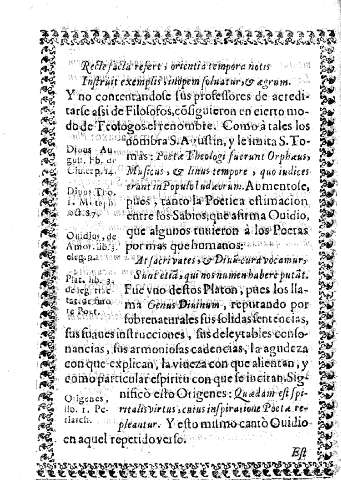 Recte facta refert; orientia tempora notis
Instruit exemplis, inopem solatur, & ægrum.
Y no contentandose sus professores de acredi-
tarse assi de Filosofos, cōsiguieron en cierto mo-
do de Teologos el renombre. Como à tales los
nombra S. Agustin, y le imita S. To-
màs: Poetæ Theologi fuerunt Orphæus,
Musæus, & linus tempore, quo iudices
erant in Populo Iudæorum. Aumentose,
pues, tanto la Poetica estimacion
entre los Sabios, que afirma Ouidio,
que algunos tuuieron à los Poetas
por mas que humanos:
At sacri vates, & Diuũ cura vocamur,
Sunt etiã, qui nos numen habere putãt.
Fue vno destos Platon, pues los lla-
ma Genus Diuinum, reputando por
sobrenaturales sus solidas sentencias,
sus suaues instrucciones, sus deleytables conso-
nancias, sus armoniosas cadencias, la agudeza
con que explican, la viueza con que alientan, y
como particular espiritu con que se incitan. Sig-
nificò esto Origenes: Quædam est spi-
ritalis virtus, cuius inspiratione Poetæ re-
pleantur. Y esto mismo cantò Ouidio
en aquel repetido verso.
Est
Diuus Au-
gust. lib. de
Ciu. c. p. 14.
Diuus Tho.
1. Metaph.
lect. 37.
Ouidius, de
Amor. lib. 3.
eleg. 9.
Plat. lib. 3.
de leg.
tat. de furo
re Poet.
Origenes,
lib. 1. Pe-
riarch.